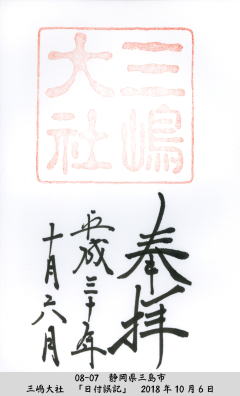 三嶋
大社
奉拝
平成三十年
十月六月
08-07　静岡県三島市
三嶋大社　「日付誤記」　2018年10月6日